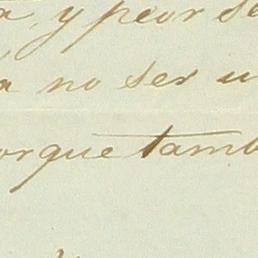 a, y peor se
a no ser u
orque tamb